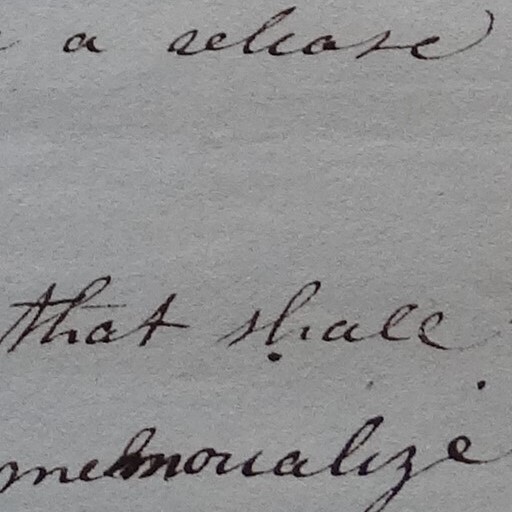 a release
that shall
memorialize